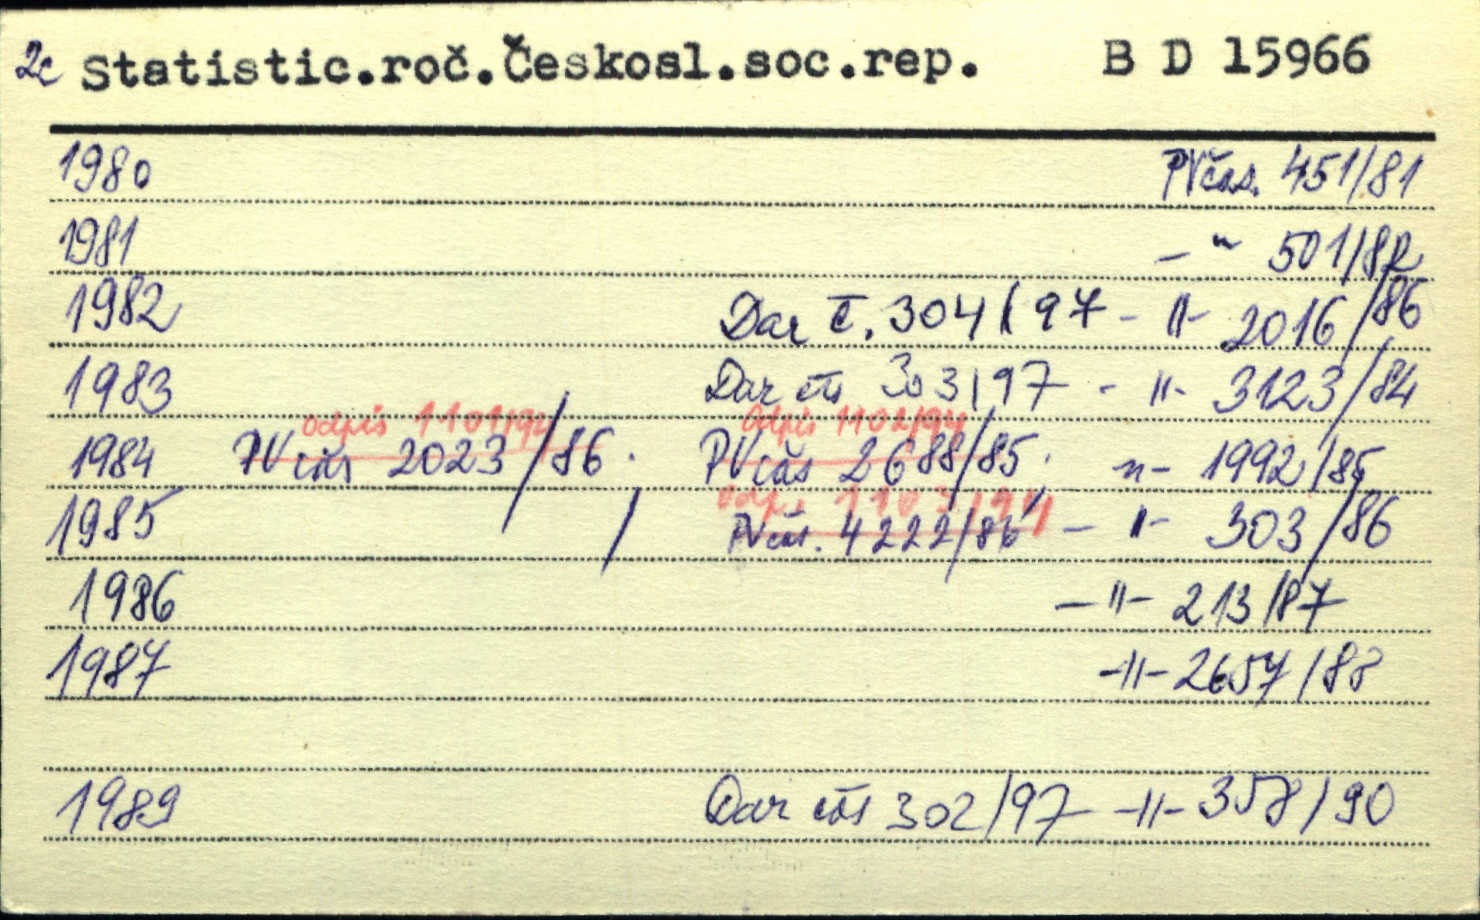 2c Statistic.roč.Českosl.soc.rep. B D 15966
1980 PVčas. 451/81
1981 -"- 501/82
1982 Dar č. 304/97 -"- 2016/86
1983 Dar čas 303/97 -"- 3123/84
odpis 1101/94 odpis 1102/94
1984 PVčas 2023/86. PVčas 2688/85. -"- 1992/85
odpis 1103/94
1985 / PVčas. 4222/86 -"- 303/86
1986 -"- 213/87
1987 -"- 2657/88
1989 Dar čas 302/97 -"- 358/90